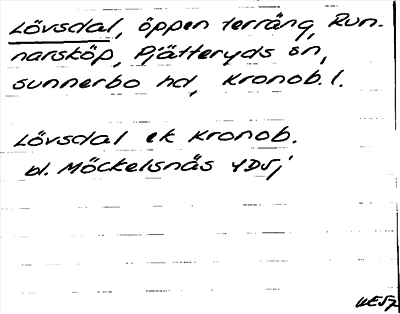 Lövsdal, öppen terräng, Run-
narsköp, Pjätteryds sn,
Sunnerbo hd, Kronob. l.
Lövsdal ek Kronob.
bl. Möckelsnäs YDSj